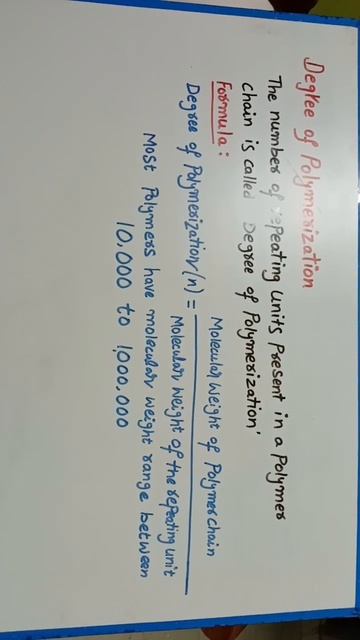 Degree of Polymerization
The number of repeating units present in a Polymer
chain is called Degree of Polymerization'
Formula:
Molecular weight of Polymer chain
Degree of Polymerization (n) =
Molecular weight of the repeating unit
Most Polymers have molecular weight range between
10,000 to 1,000,000